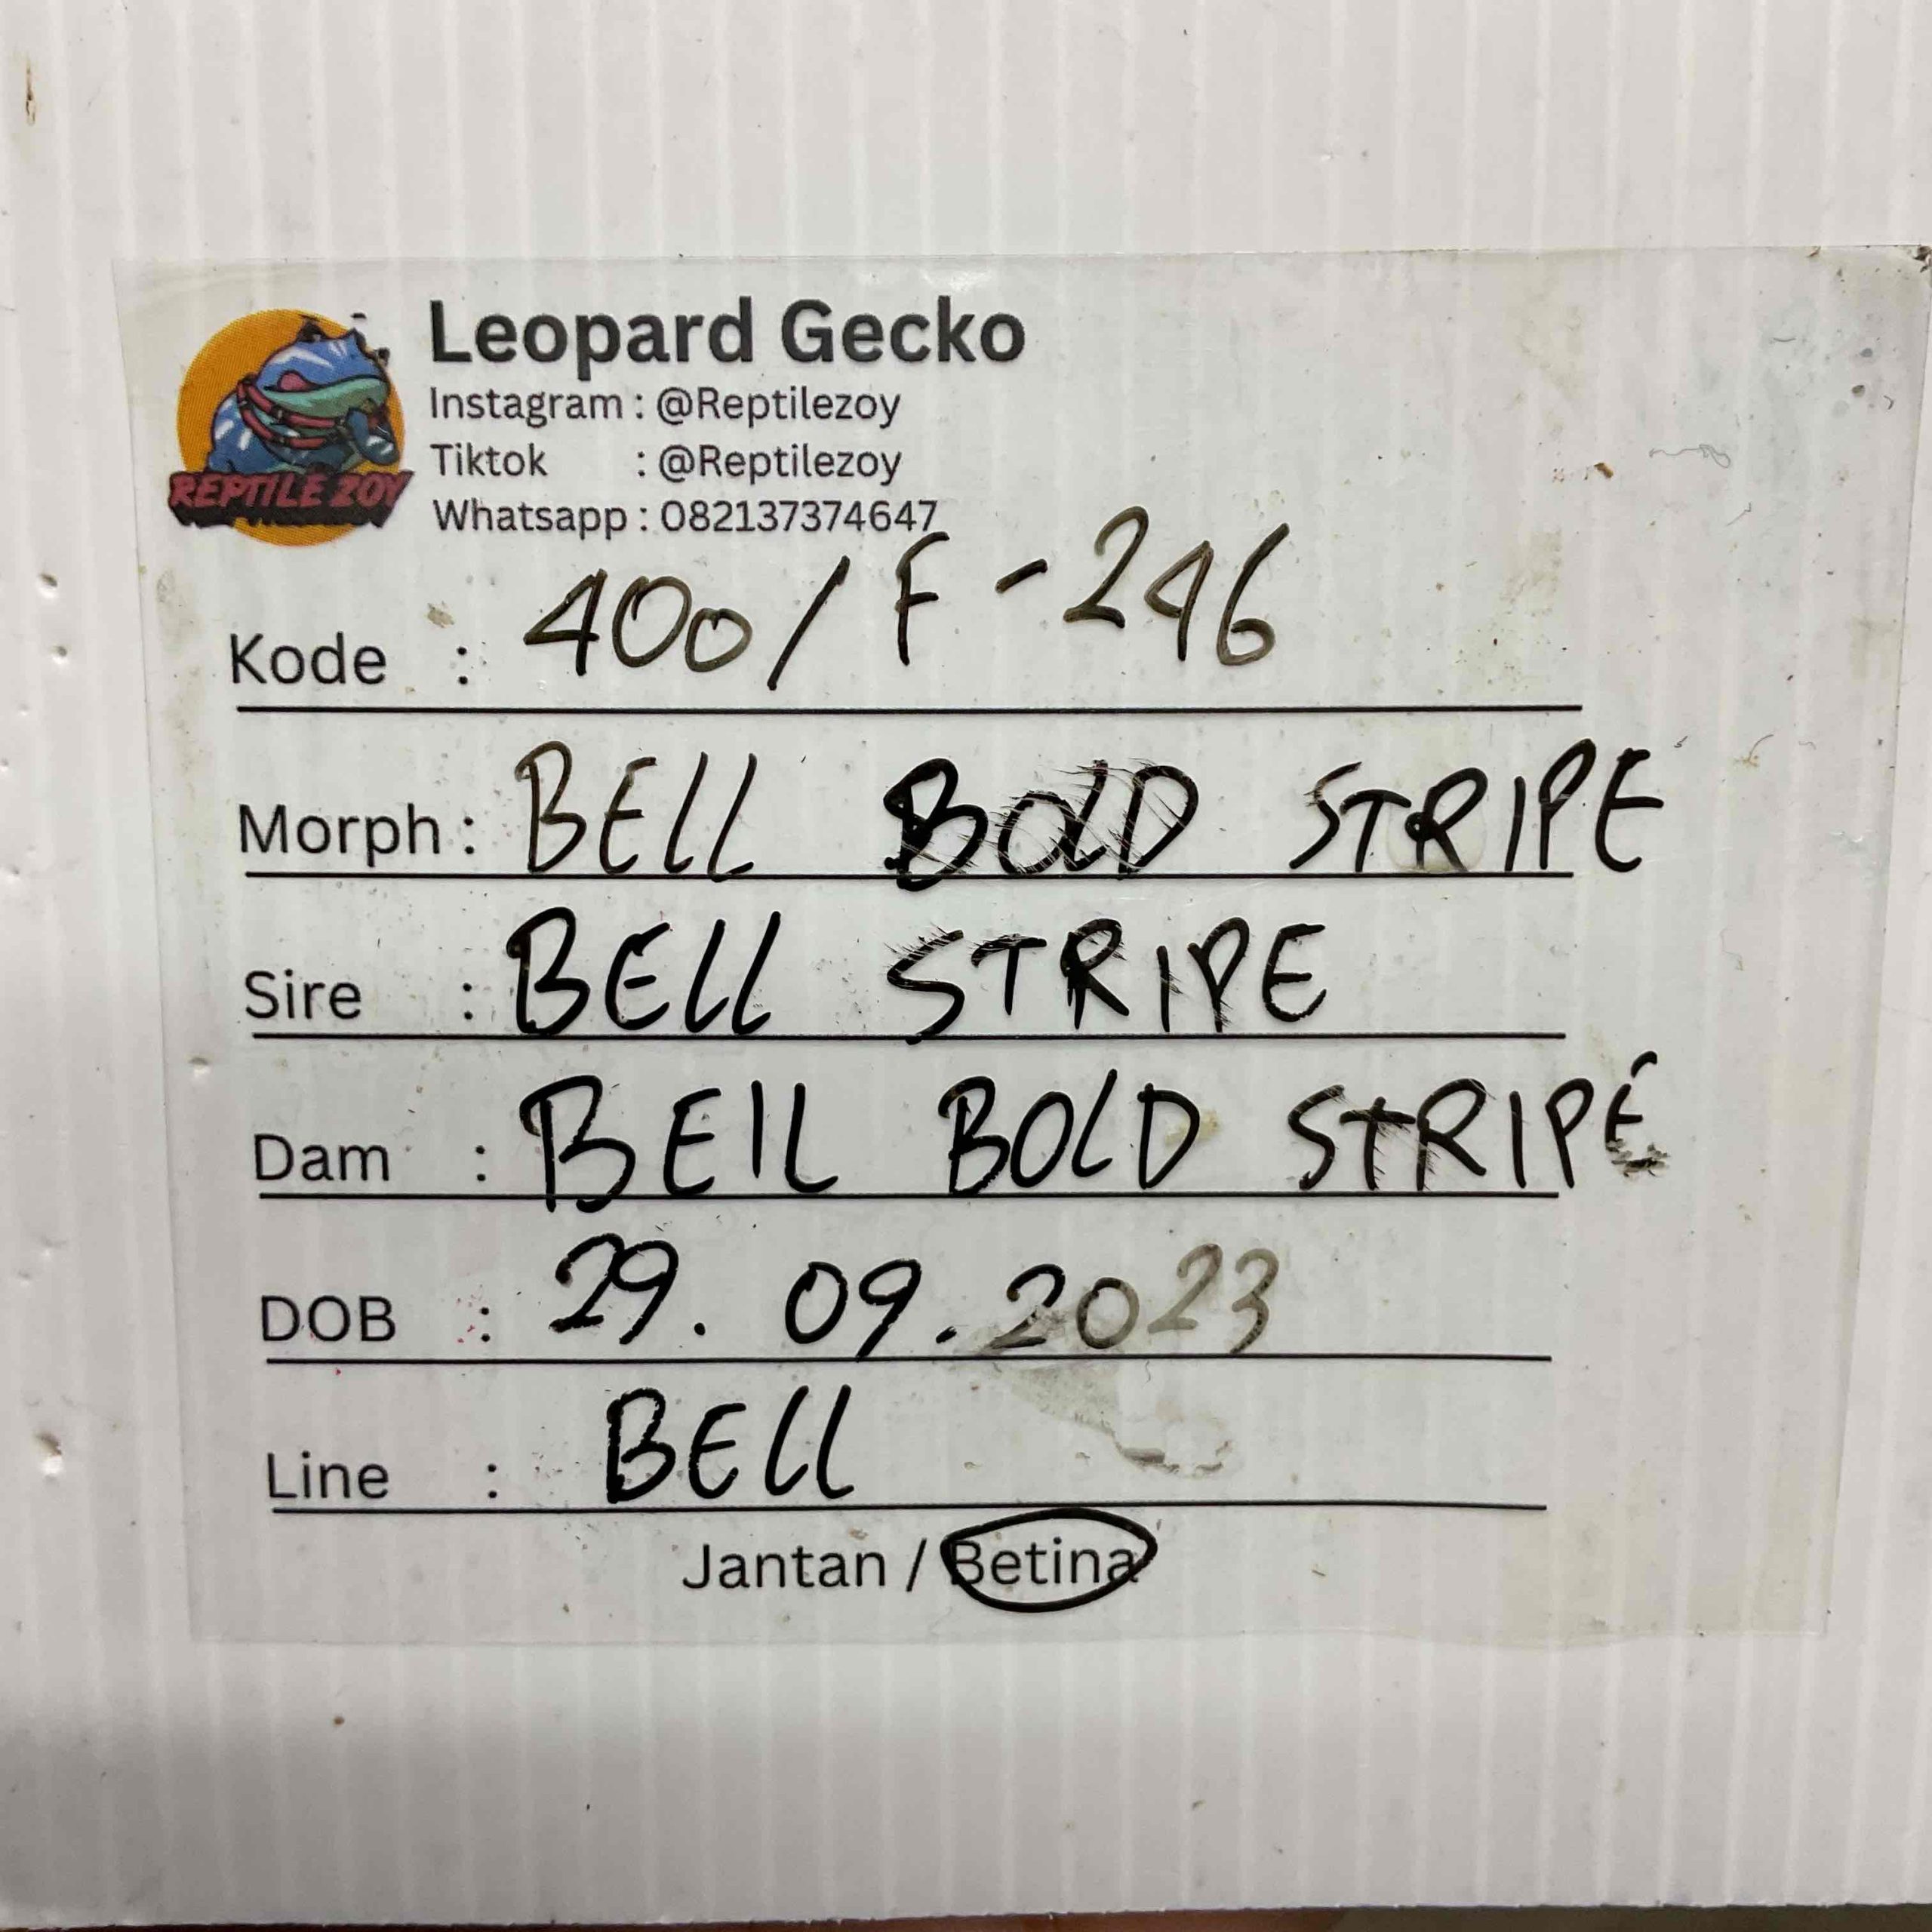 REPTILE ZOY
Leopard Gecko
Instagram : @Reptilezoy
Tiktok : @Reptilezoy
Whatsapp : 082137374647
Kode : 400/F-246
Morph : BELL BOLD STRIPE
Sire : BELL STRIPE
Dam : BELL BOLD STRIPE
DOB : 29.09.2023
Line : BELL
Jantan / Betina